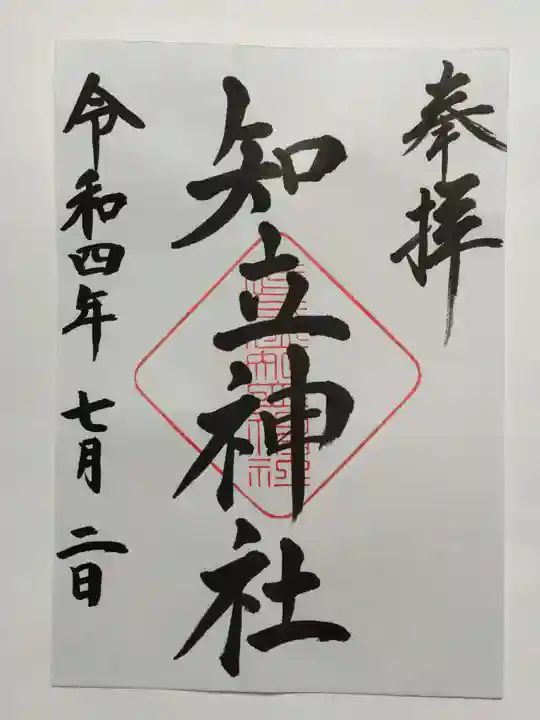 奉拝
知立神社
令和四年七月二日